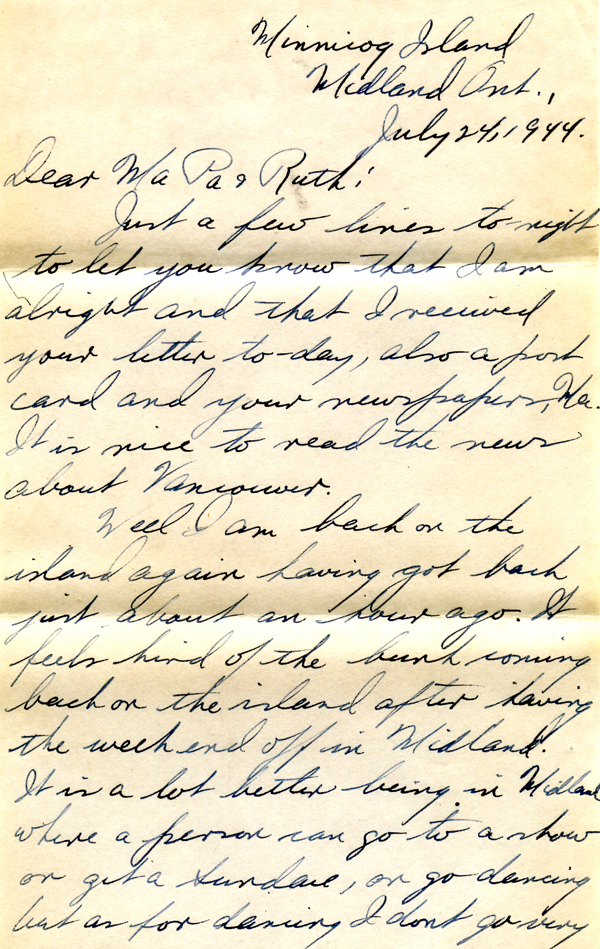 Minnicog Island
Midland Ont.,
July 24, 1944.
Dear Ma Pa & Ruth:
Just a few lines to-night
to let you know that I am
alright and that I received
your letter to-day, also a post
card and your newspapers, Ma.
It is nice to read the news
about Vancouver.
Well I am back on the
island again having got back
just about an hour ago. It
feels kind of the bunk coming
back on the island after having
the week end off in Midland.
It is a lot better being in Midland
where a person can go to a show
or get a sundae, or go dancing
but as for dancing I dont go very